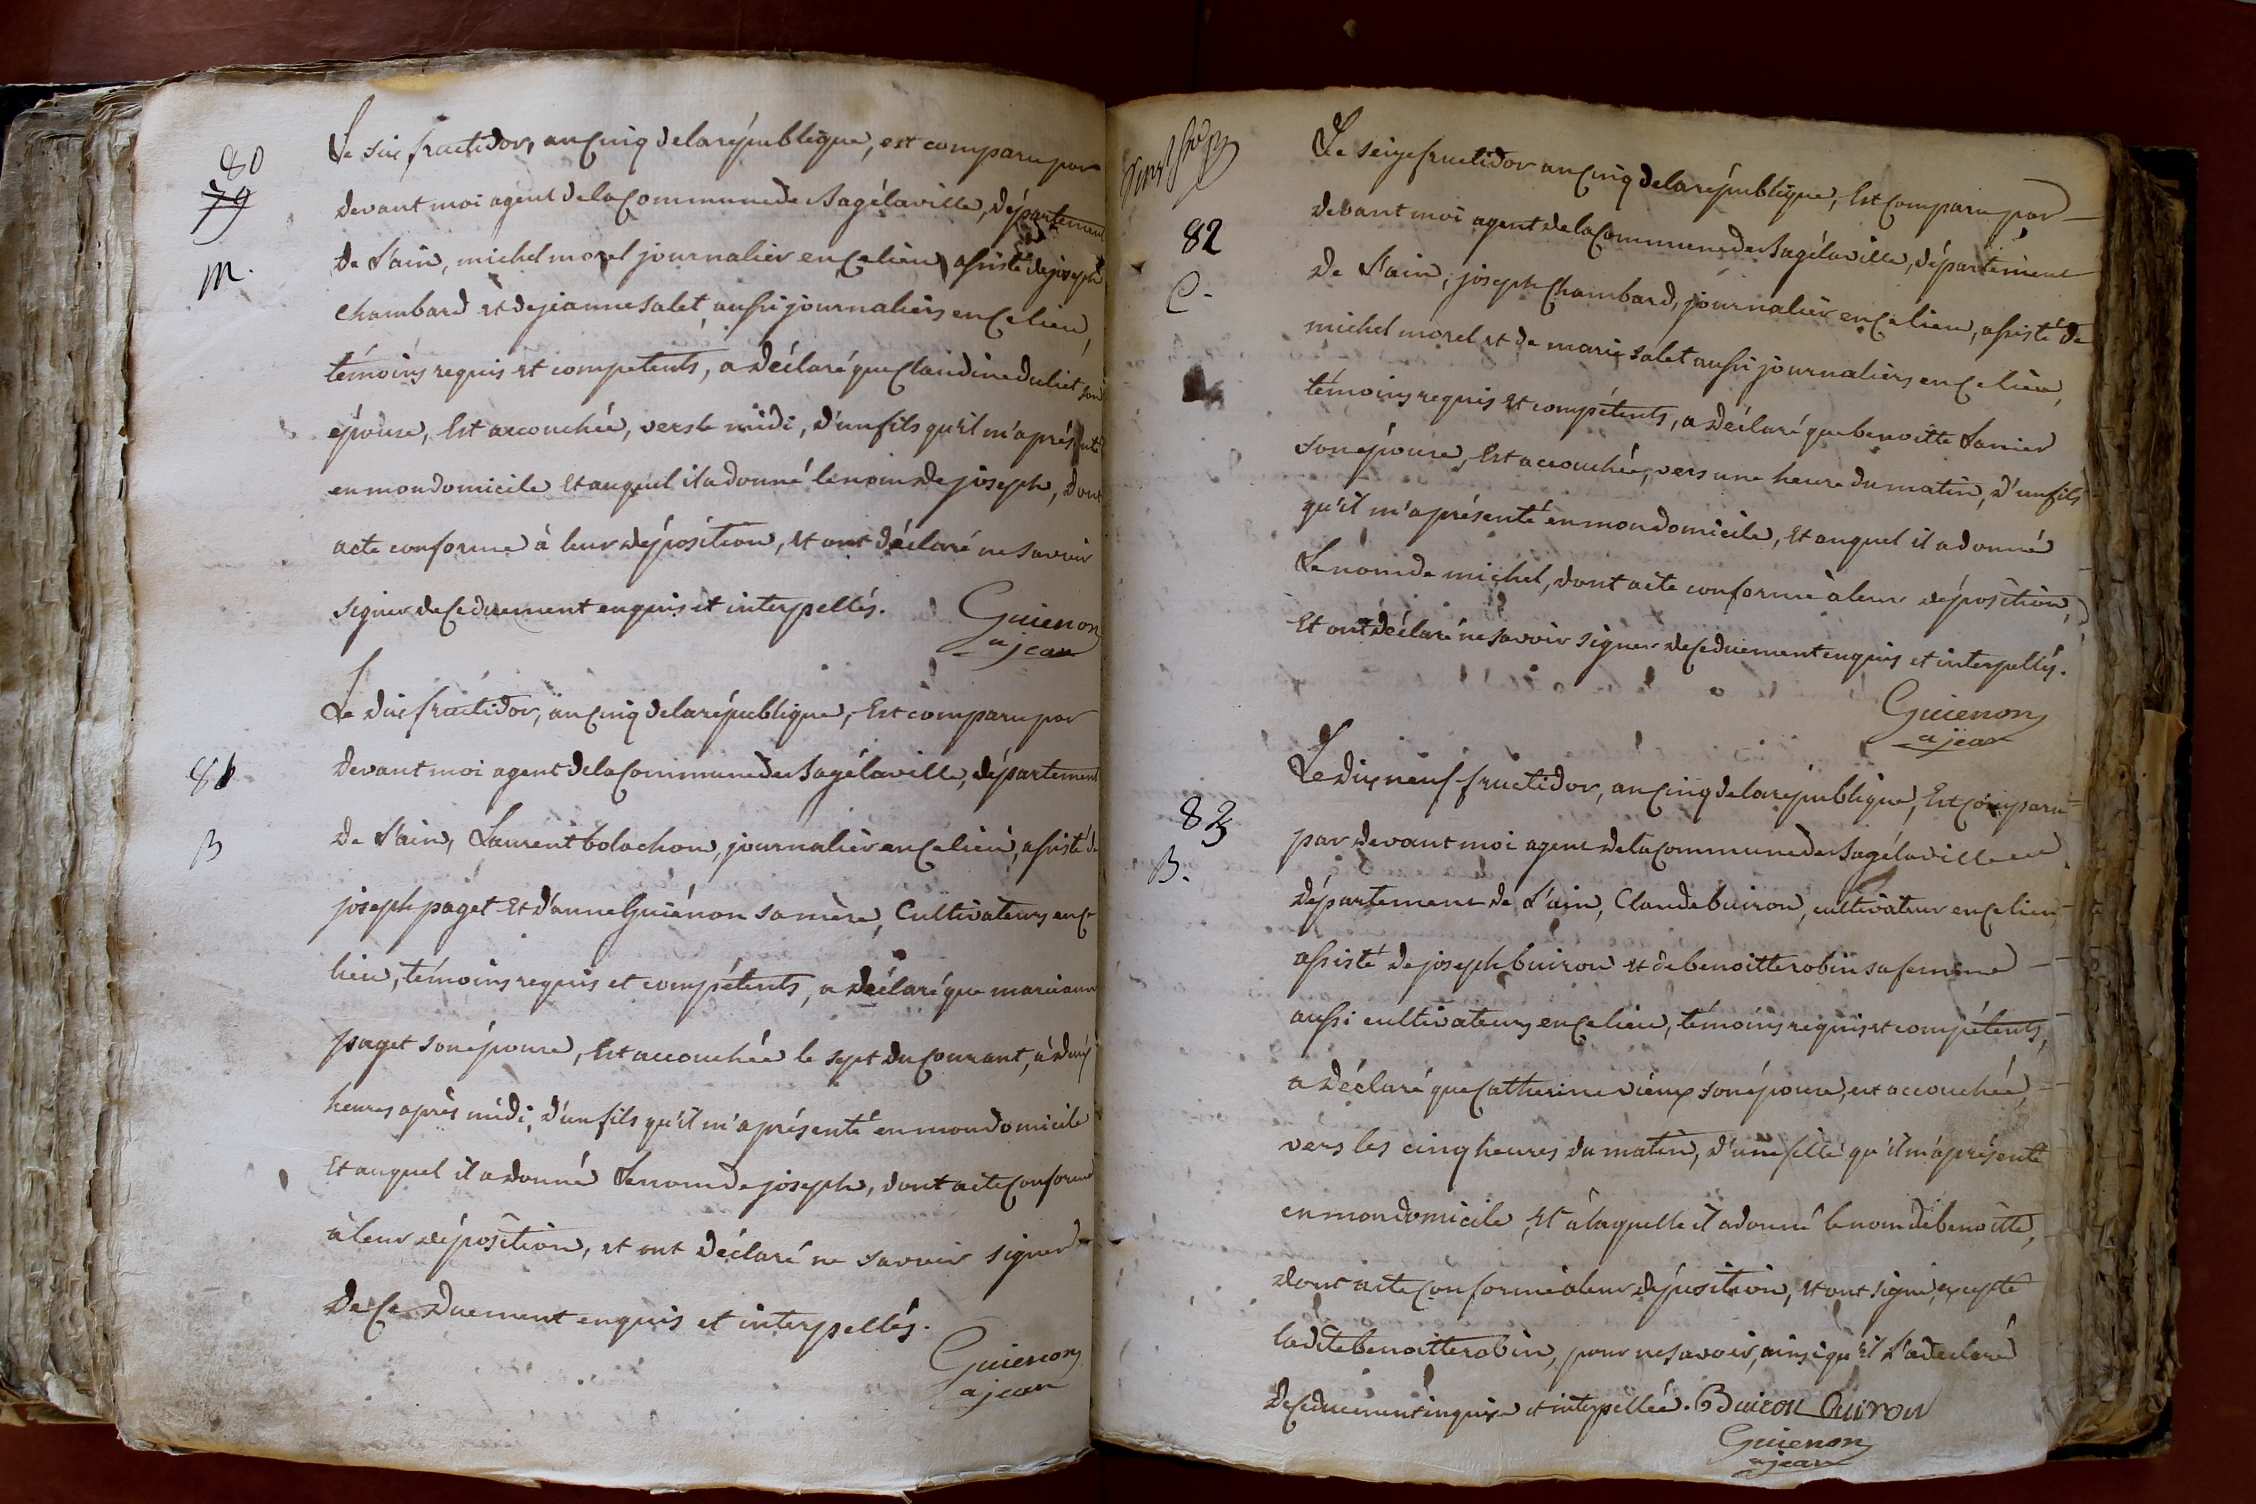 80
79
m.
Le six fructidor, an cinq de la république, est comparu par
devant moi agent de la Commune de Sagélaville, département
de l'ain, michel morel journalier en ce lieu, assisté de joseph
Chambard et de jeanne salet, aussi journaliers en ce lieu,
témoins requis et compétents, a déclaré que Claudine duliet son
épouse, Est accouchée, vers le midi, d'un fils qu'il m'a présenté
en mon domicile Et auquel il a donné le nom de joseph, dont
acte conforme à leur déposition, et ont déclaré ne savoir
signer de Ce duement enquis et interpellés.
Guienon
a jean
81
B
Le dix fructidor, an cinq de la république, Est comparu par
devant moi agent de la Commune de Sagélaville, département
de l'ain, Laurent bolachon, journalier en ce lieu, assisté de
joseph paget Et d'anne Guiénon sa mère, Cultivateurs en ce
lieu, témoins requis et compétents, a déclaré que marianne
paget son épouse, Est accouchée le sept du Courant, à deux
heures après midi, d'un fils qu'il m'a présenté en mon domicile
Et auquel il a donné Le nom de joseph, dont acte Conforme
à leur déposition, et ont déclaré ne savoir signer
de Ce duement enquis et interpellés.
Guienon
a jean
82
C.
Le seize fructidor an cinq de la république, Est Comparu par
devant moi agent de la Commune de Sagélaville, département
de l'ain, joseph Chambard, journalier en ce lieu, assisté de
michel morel et de marie salet aussi journaliers en ce lieu,
témoins requis et compétents, a déclaré que benoitte Lanier
son épouse, Est accouchée, vers une heure du matin, d'un fils
qu'il m'a présenté en mon domicile, Et auquel il a donné
Le nom de michel, dont acte conforme à leur déposition,
Et ont déclaré ne savoir signer de Ce duement enquis et interpellés.
Guienon
a jean
83
B.
Le dix neuf fructidor, an cinq de la république, Est Comparu
par devant moi agent de la Commune de Sagélaville
département de l'ain, Claude buiron, cultivateur en ce lieu,
assisté de joseph buiron et de benoitte robin sa femme
aussi cultivateurs en ce lieu, témoins requis et compétents,
a déclaré que Catherine vieux son épouse, est accouchée,
vers les cinq heures du matin, d'une fille qu'il m'a présenté
en mon domicile, Et à laquelle il a donné le nom de benoitte,
dont acte Conforme à leur déposition, et ont signé, excepté
ladite benoitte robin, pour ne savoir, ainsi qu'il l'a déclaré
de Ce duement inquise et interpellée. Buiron Buiron
Guienon
a jean